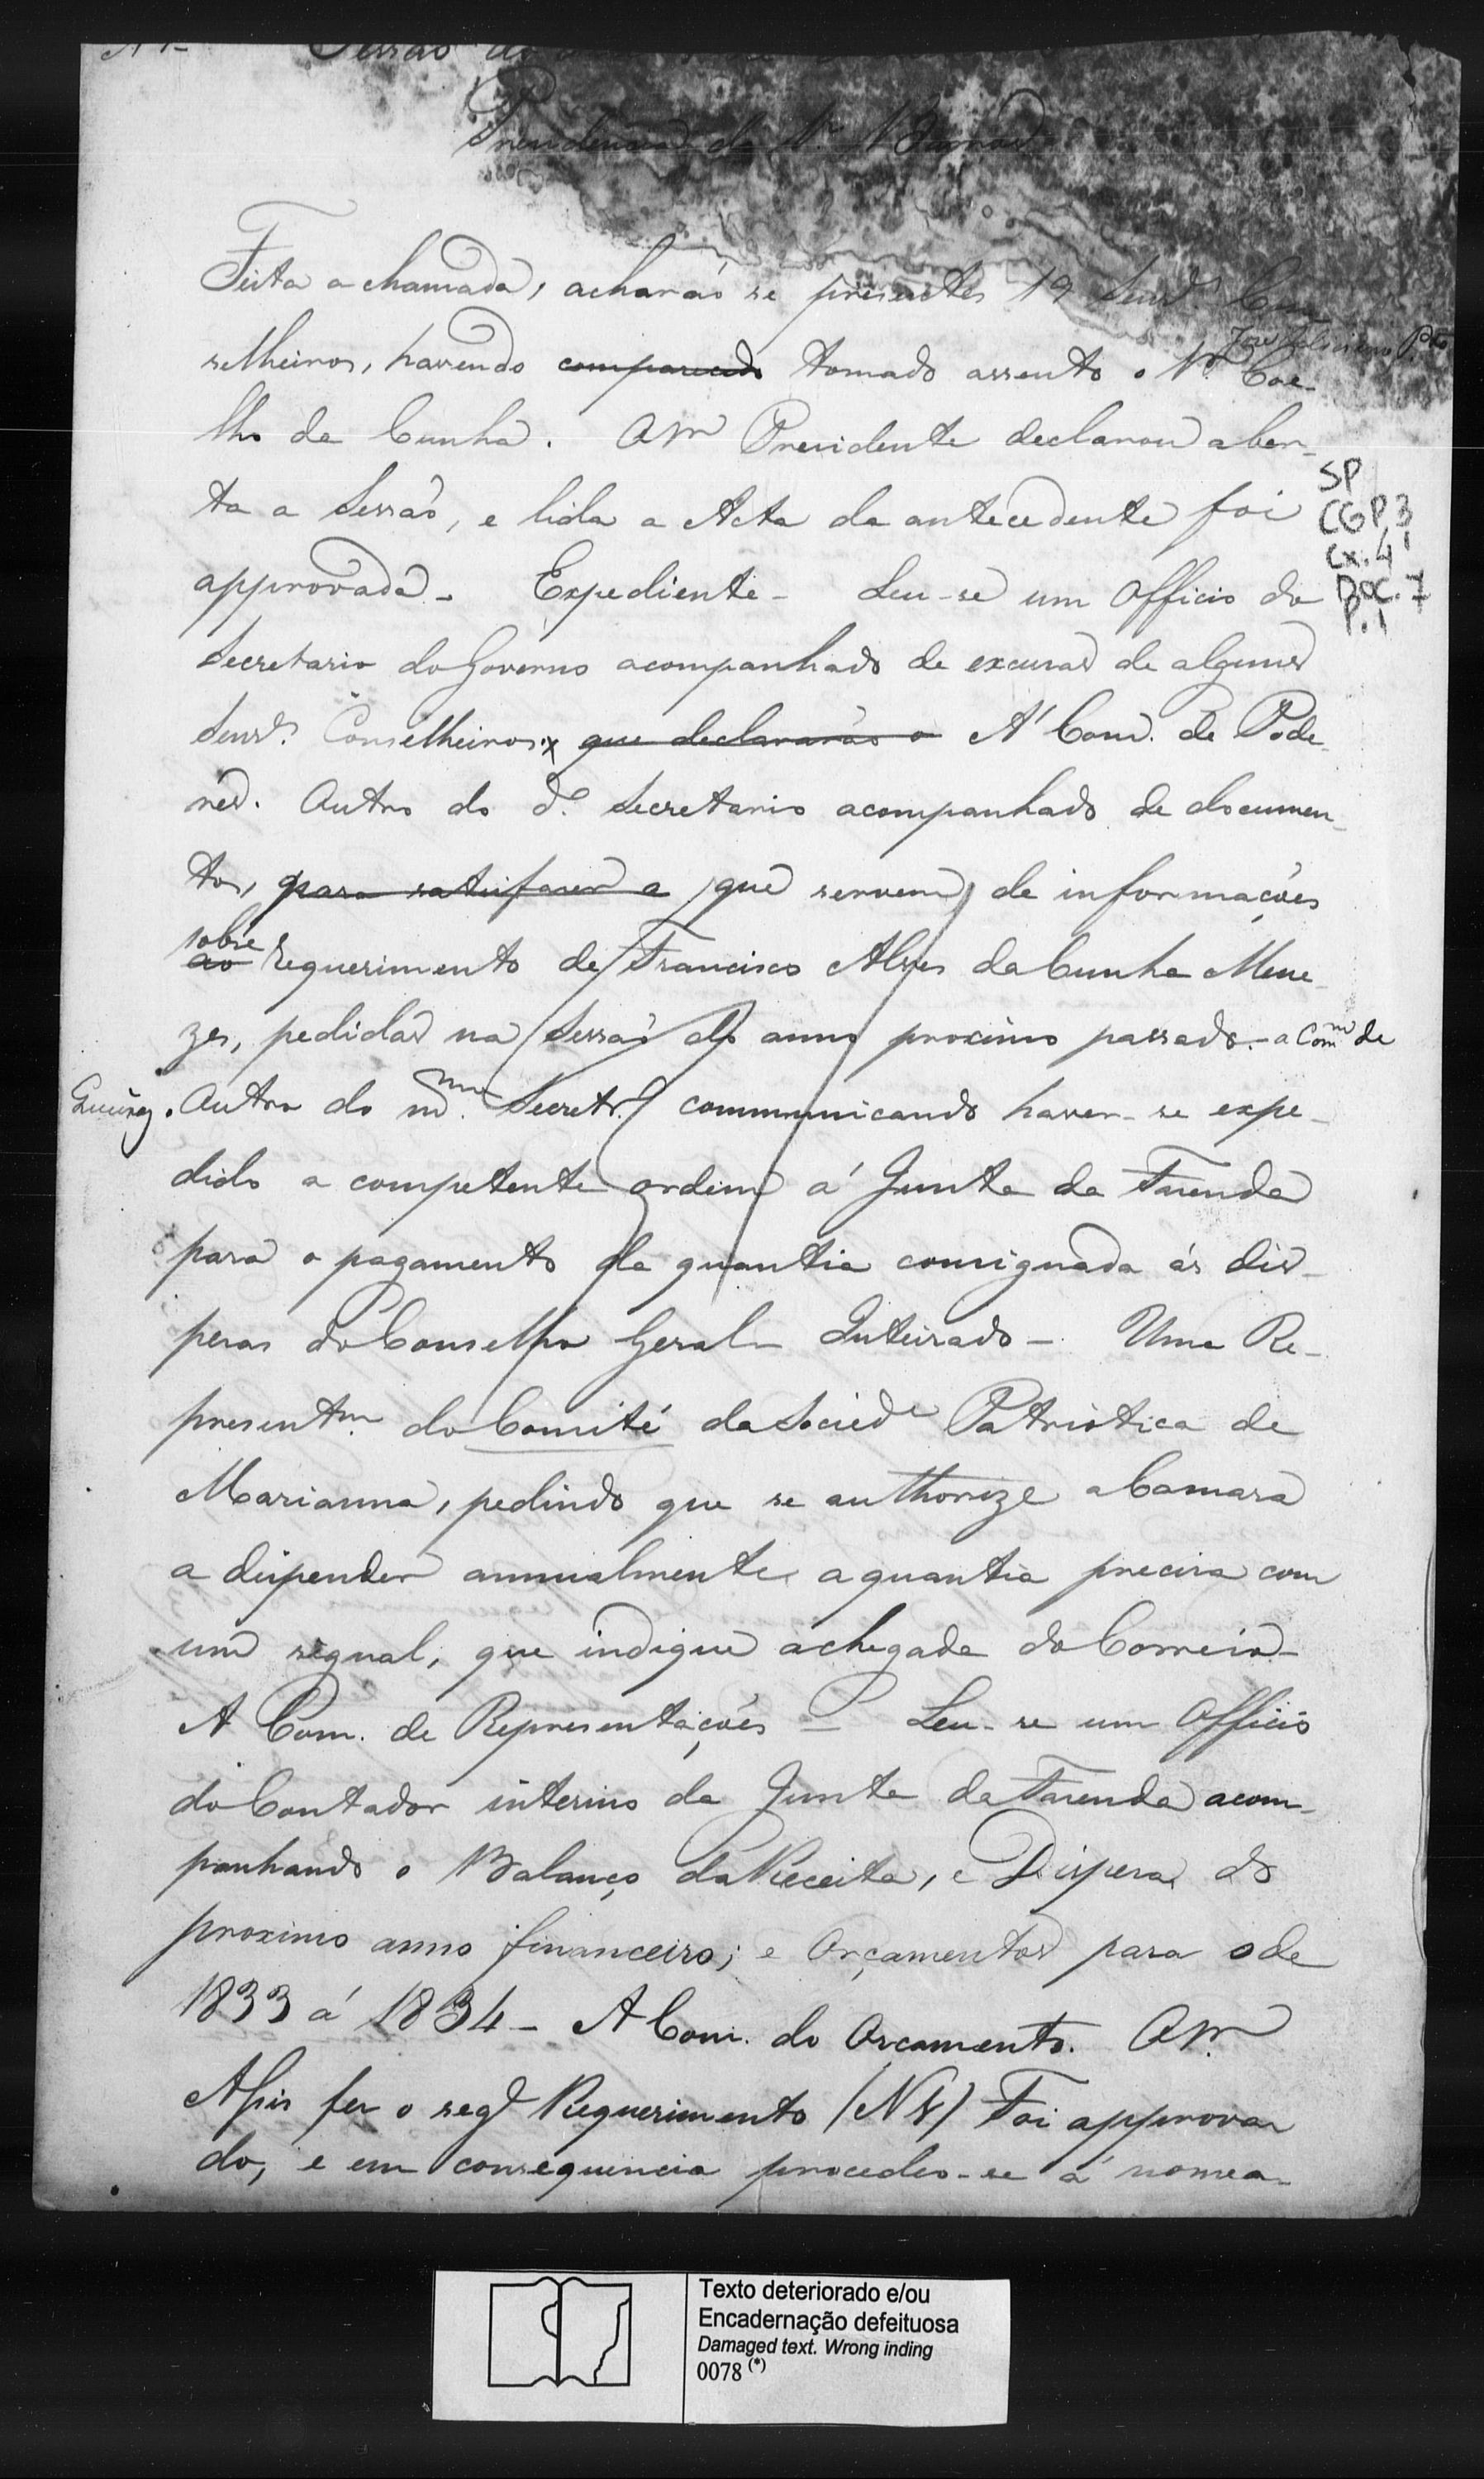 Sessão do
Presidencia do Sr. Barros
Feita a chamada, acharão se presentes 19 Senrs. Con
selheiros, havendo comparecido tomado assento o Sr. José Feliciano Pto Coe-
lho da Cunha. O Sr Presidente declarou aber-
ta a Sessão, e lida a Acta da antecedente foi
approvada. Expediente - Leu-se um Officio do
Secretario do Governo acompanhado de excusas de alguns
Senrs. Conselheiros, que declararão o A' Com. de Pode-
res. Outro do do. Secretario acompanhado de documen-
tos, para satisfazer a que servem de informações
ao sobre Requerimento de Francisco Alves da Cunha Mene-
zes, pedidas na Sessão do anno proximo passado. - a Comm de
Outro do mmo. Secretr. communicando haver-se expe-
dido a competente ordem á Junta da Fazenda
para o pagamento da quantia consignada ás dis-
pezas do Conselho Geral - Inteirado - Uma Re-
presentm. do Comité da Sociede Patriotica de
Marianna, pedindo que se authorize a Camara
a dispender annualmente a quantia precisa com
um signal, que indique a chegada do Correio -
A Com. de Representações - Leu-se um Officio
do Contador interino da Junta da Fazenda acom-
panhando o Balanço da Receita, e Dispeza do
proximo anno financeiro; e Orçamentos para o de
1833 á 1834 - A Com. do Orçamento. O Sr.
Assis fez o segte Requerimento (N 1) Foi approva
do, e em consequencia procedeo-se á nomea-
SP
CGP.3
Cx. 41
DOC. 7
P. 1
Texto deteriorado e/ou
Encadernação defeituosa
Damaged text. Wrong inding
0078 (*)